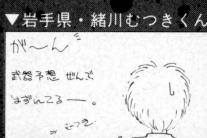 ▼岩手県・緒川むつきくん
が〜ん
武器予想 ぜんぶ
はずれてる──。
by むつき